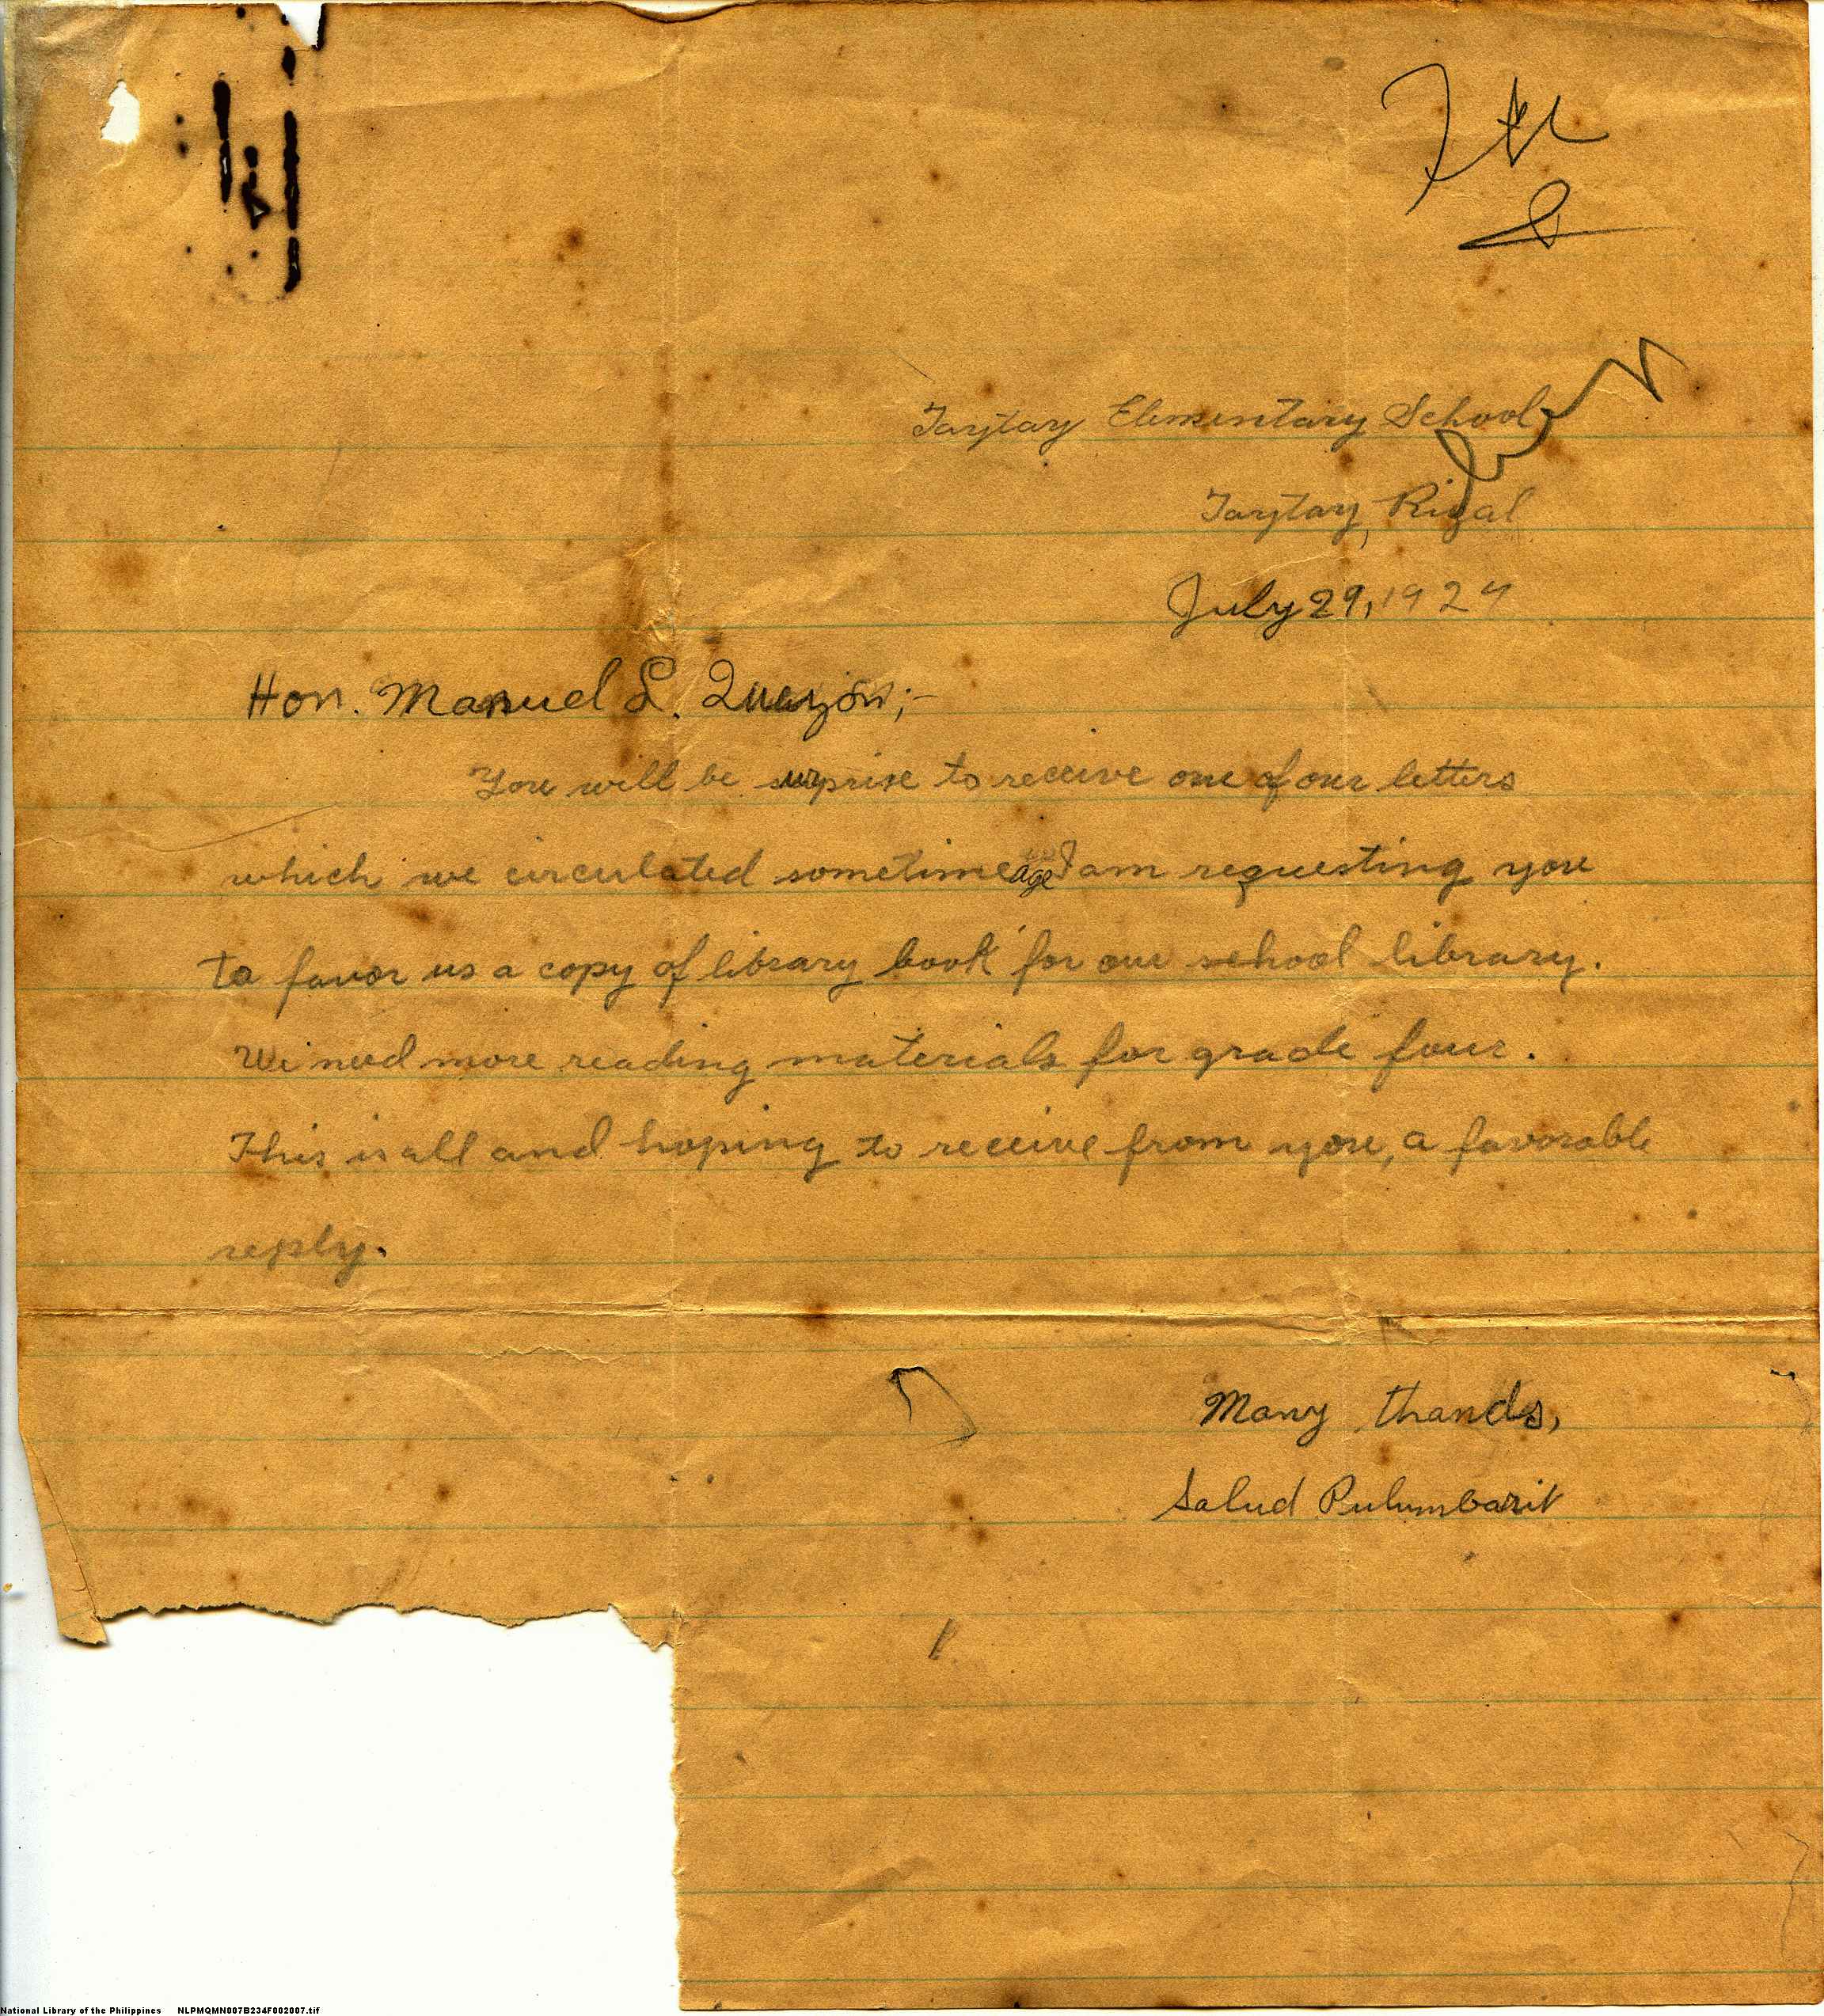 Taytay Elementary School
Taytay, Rizal
July 29, 1924
Hon. Manuel L. Quezon;-
You will be surprise to receive one of our letters
which we circulated sometime age I am requesting you
to favor us a copy of library book for our school library.
We need more reading materials for grade four.
This is all and hoping to receive from you, a favorable
reply.
Many thands,
Salud Pulumbarit
National Library of the Philippines NLPMQMN007B234F002007.tif